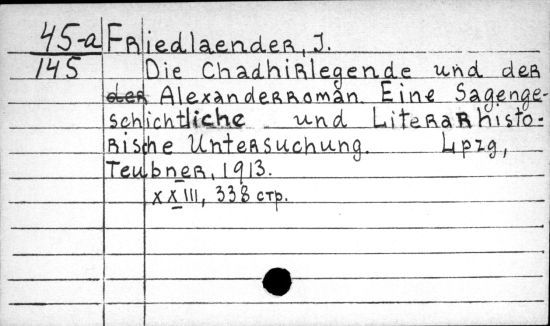 45-a Friedlaender, J.
145 Die Chadhirlegende und der
der Alexanderroman. Eine Sagenge-
schichtliche und Literarhisto-
rische Untersuchung. Lpzg,
Teubner, 1913.
XXIII, 338 стр.